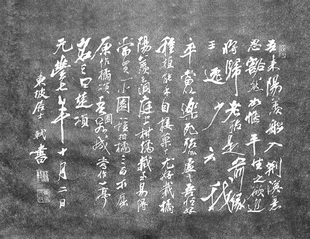 吾來陽羨船入荆溪意
思豁然如愜平生之欲逝
將歸老殆是前緣
王逸少云我
卒當以樂死殆非虛言吾性好
種植能手自接菓木尤好栽橘
陽羨在洞庭上柑橘栽至易得
當買一小園種柑橘三百本屈
原作橘頌吾園落成當作一亭
名之曰楚頌
元豐七年十月二日
東坡居士軾書